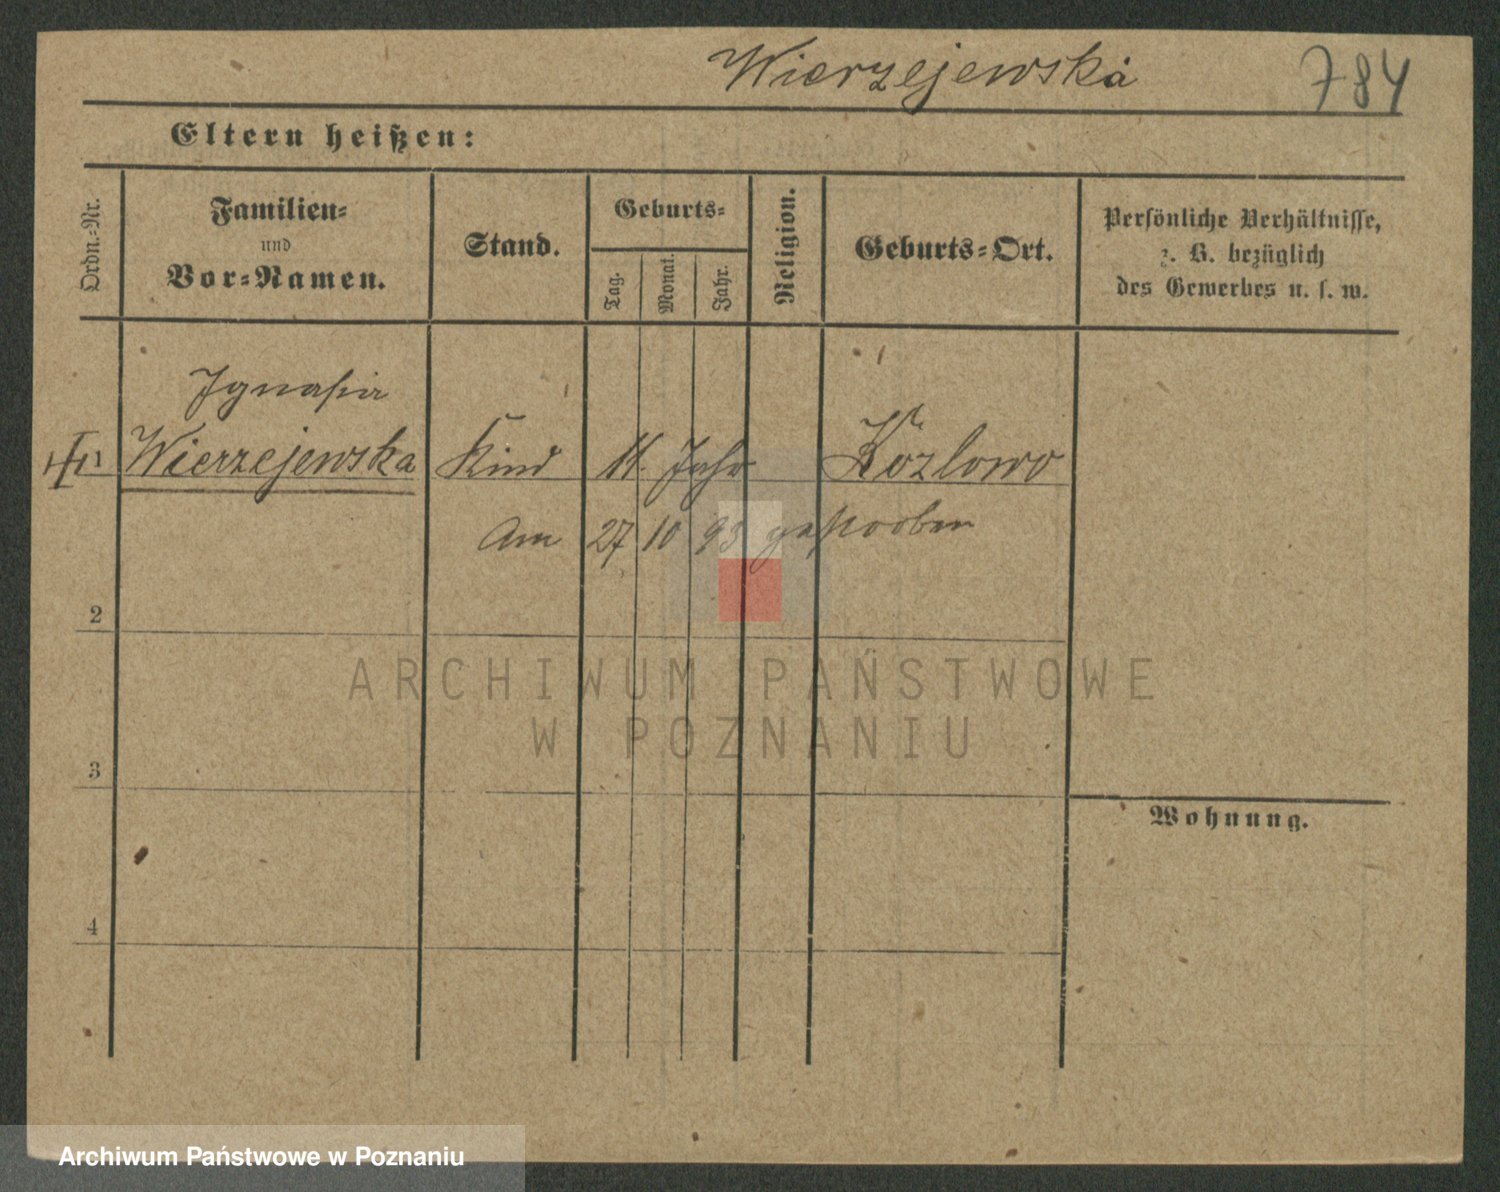 Wierzejewska 784
Eltern heißen:
Ordn.-Nr.
Familien-
und
Vor-Namen.
Stand.
Geburts-
Tag.
Monat.
Jahr.
Religion.
Geburts-Ort.
Persönliche Verhältnisse,
z. B. bezüglich
des Gewerbes u. s. w.
Ignasia
1 Wierzejewska Kind 11. Jahr Kozlowo
Am 27 10 93 gestorben
2
3
4
Wohnung.
ARCHIWUM PAŃSTWOWE
W POZNANIU
Archiwum Państwowe w Poznaniu